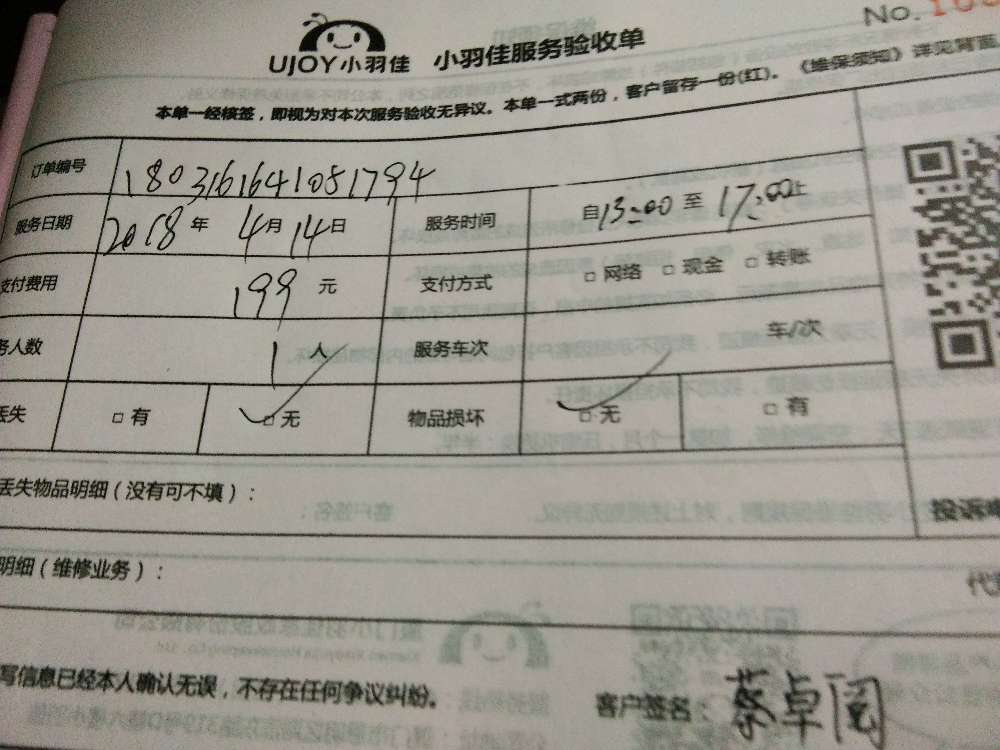 No. 10
UJOY小羽佳 小羽佳服务验收单
本单一经核签，即视为对本次服务验收无异议。本单一式两份，客户留存一份(红)。《维保须知》详见背面
订单编号 1803161641051794
服务日期 2018年 4月 14日 服务时间 自13:00 至 17:00止
支付费用 199 元 支付方式 □ 网络 □ 现金 □ 转账
务人数 1 人 服务车次 车/次
丢失 □ 有 □ 无 物品损坏 □ 无 □ 有
丢失物品明细（没有可不填）：
投诉
明细（维修业务）：
写信息已经本人确认无误，不存在任何争议纠纷。 客户签名：蔡卓